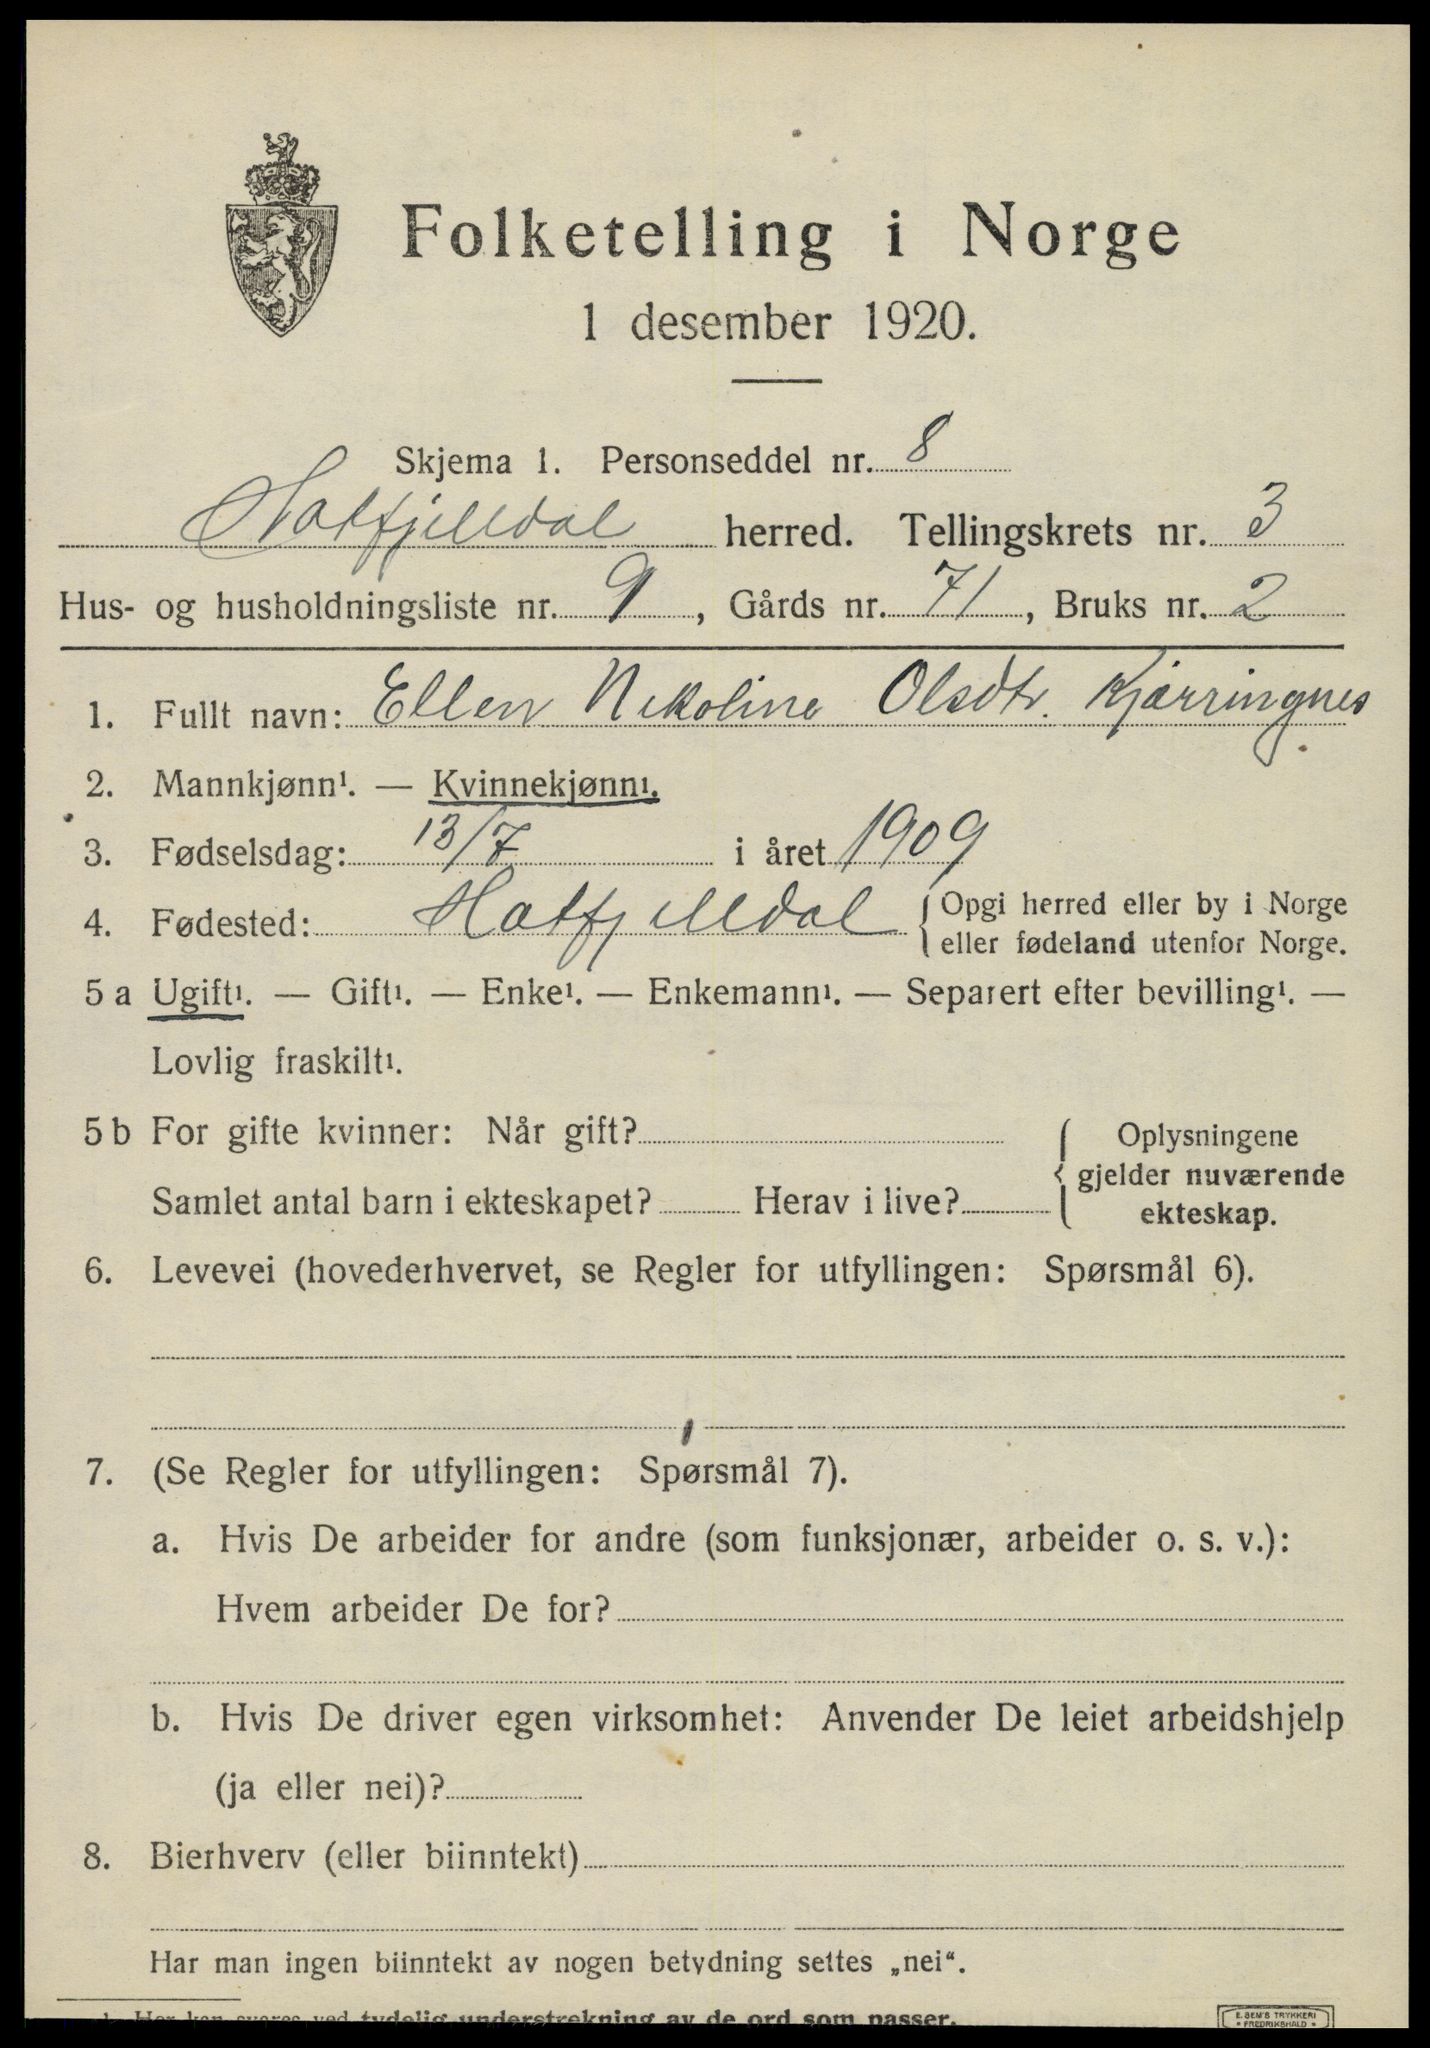 Folketelling i Norge
1 desember 1920.
Skjema 1. Personseddel nr. 8
Hatfjelldal herred. Tellingskrets nr. 3
Hus- og husholdningsliste nr. 9, Gårds nr. 71, Bruks nr. 2
1. Fullt navn: Ellen Nikoline Olsdtr. Kjærringnes
2. Mannkjønn¹. — Kvinnekjønn¹.
3. Fødselsdag: 13/7 i året 1909
4. Fødested: Hatfjelldal { Opgi herred eller by i Norge
eller fødeland utenfor Norge.
5 a Ugift¹. — Gift¹. — Enke¹. — Enkemann¹. — Separert efter bevilling¹. —
Lovlig fraskilt¹.
5 b For gifte kvinner: Når gift?
Samlet antal barn i ekteskapet? Herav i live?
Oplysningene
gjelder nuværende
ekteskap.
6. Levevei (hovederhvervet, se Regler for utfyllingen: Spørsmål 6).
7. (Se Regler for utfyllingen: Spørsmål 7).
a. Hvis De arbeider for andre (som funksjonær, arbeider o. s. v.):
Hvem arbeider De for?
b. Hvis De driver egen virksomhet: Anvender De leiet arbeidshjelp
(ja eller nei)?
8. Bierhverv (eller biinntekt)
Har man ingen biinntekt av nogen betydning settes „nei“.
1. Her kan svares ved tydelig understrekning av de ord som passer.
E. SEM'S TRYKKERI
• FREDRIKSHALD •